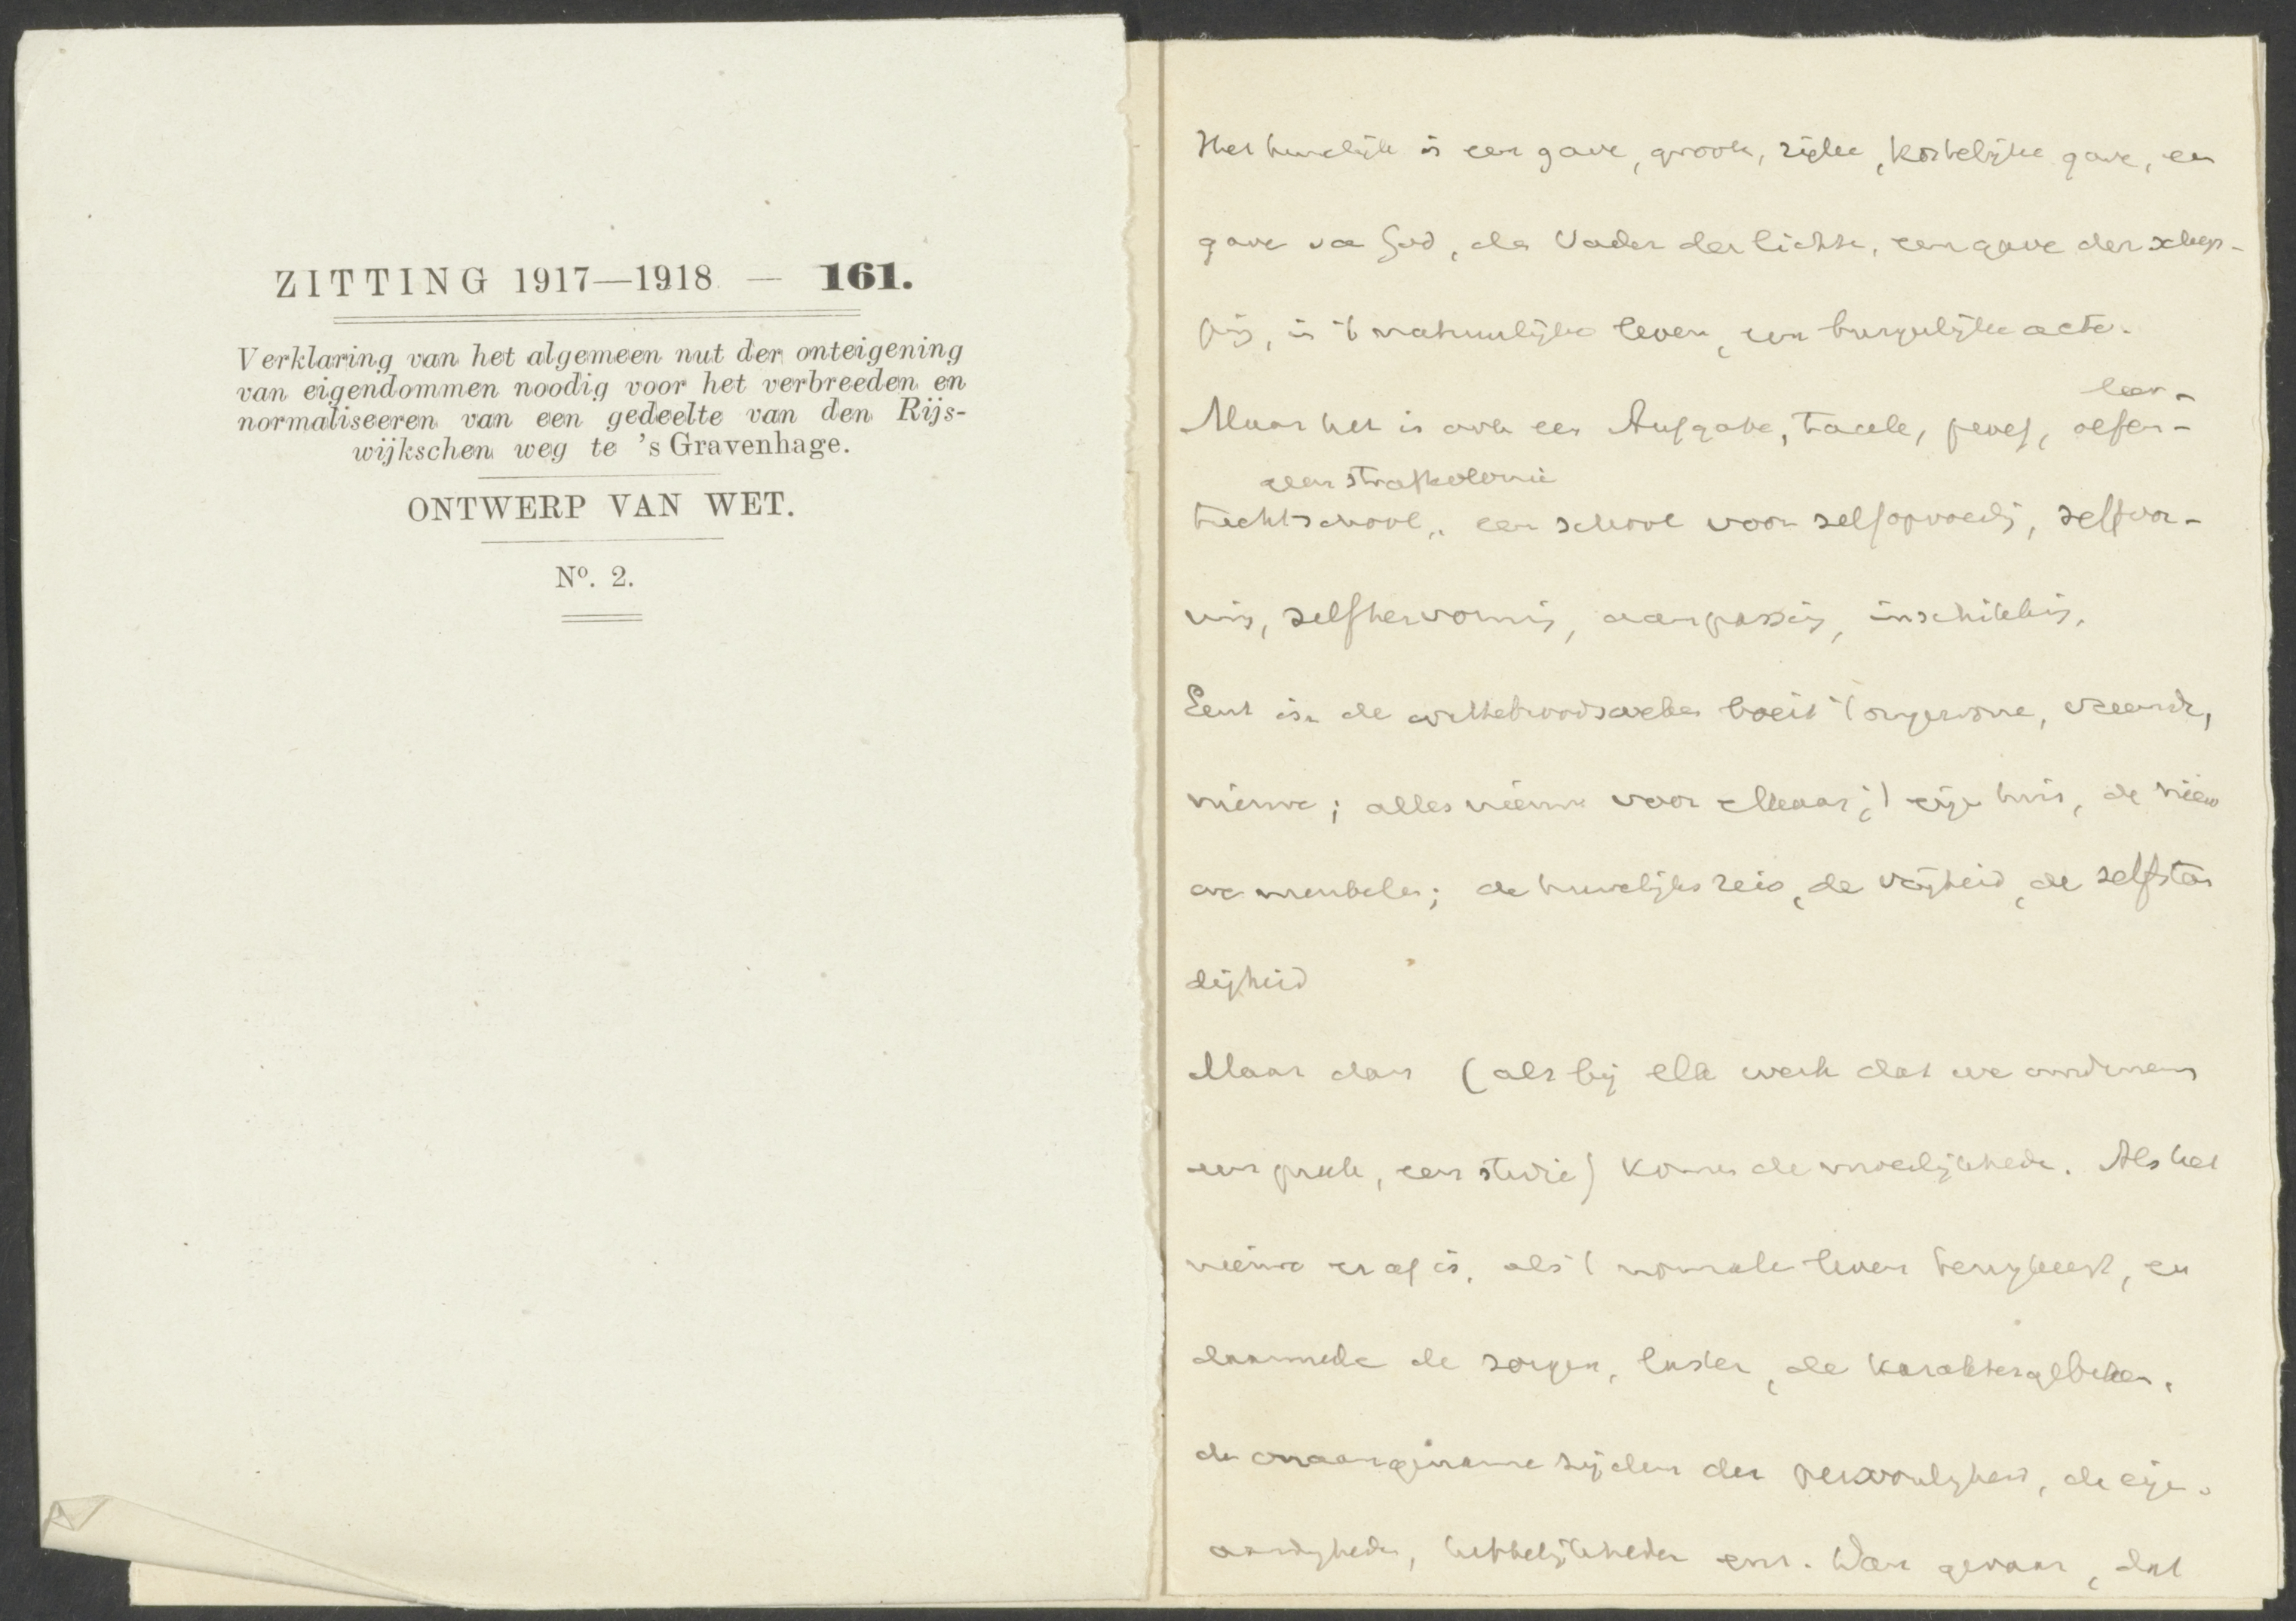 ZITTING 1917—1918 — 161.
Verklaring van het algemeen nut der onteigening
van eigendommen noodig voor het verbreeden en
normaliseeren van een gedeelte van den Rijs-
wijkschen weg te 's Gravenhage.
ONTWERP VAN WET.
Nº. 2.
Het huwelijk is een gave, groote, rijke, kostelijke gave, een
gave van God, den Vader der lichten, een gave der schep-
ping, in 't natuurlijke leven, een burgerlijke acte.
leer-
Maar het is ook een Aufgabe, taak, proef, oefen-
een strafkolonie
tuchtschool, een school voor zelfopvoeding, zelfvor-
ming, zelfhervorming, aanpassing, inschikking.
Eerst in de wittebroodsweken boeit 't ongewone, vreemde,
nieuwe; alles nieuw voor elkaar; 't eigen huis, de nieuw
we meubelen; de huwelijksreis, de vrijheid, de zelfstan
digheid
Maar dan (als bij elk werk dat we ondernemen
een preek, een studie) komen de moeilijkheden. Als het
nieuwe eraf is, als 't normale leven terugkeert, en
daarmede de zorgen, lasten, de karaktergebreken,
de onaangename zijden der persoonlijkheid, de eigen-
aardigheden, hebbelijkheden enz. Dan gevaar, dat